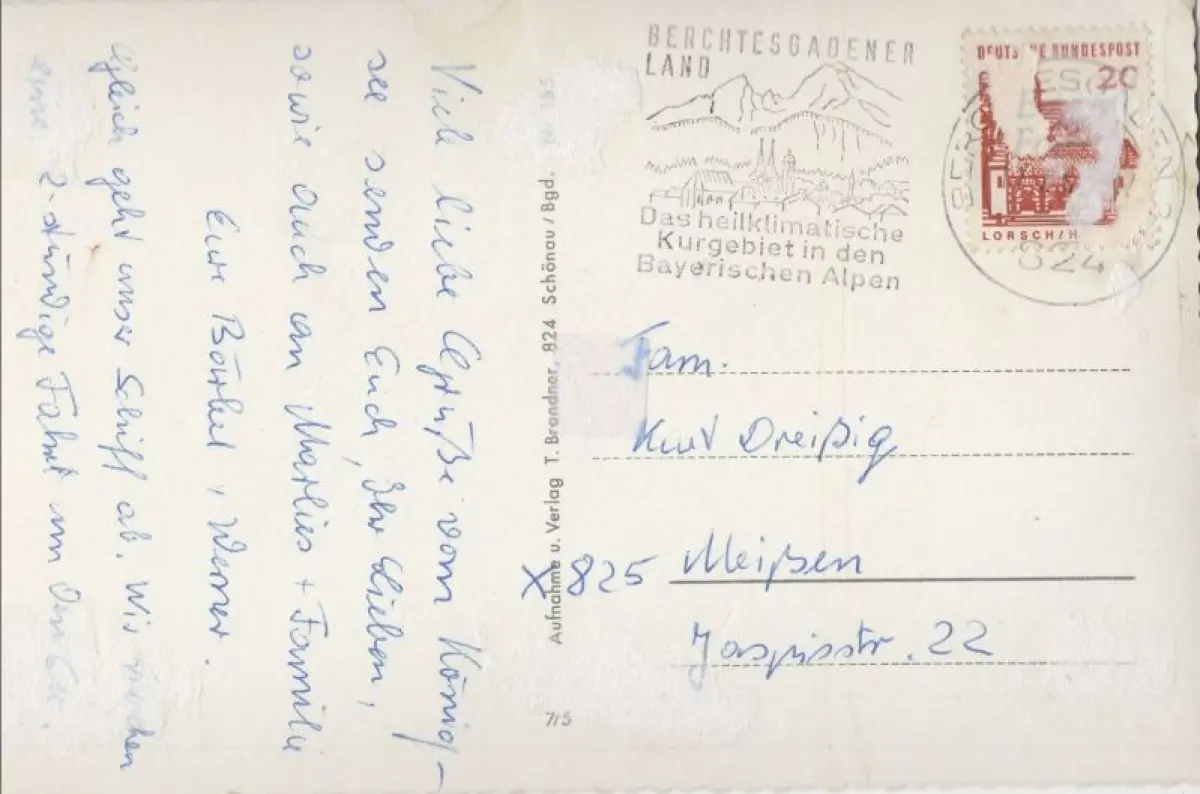 Viele liebe Grüße vom König-
see senden Euch, Ihr Lieben,
sowie auch an Marlies + Familie
Eure Bärbel + Werner.
Gleich geht unser Schiff ab. Wir machen
eine 2-stündige Fahrt um den See.
Aufnahme u. Verlag T. Brandner, 824 Schönau / Bgd.
7/5
BERCHTESGADENER
LAND
Das heilklimatische
Kurgebiet in den
Bayerischen Alpen
DEUTSCHE BUNDESPOST
20
LORSCH/H
824
Fam.
Kurt Dreißig
X 825 Meißen
Jaspisstr. 22